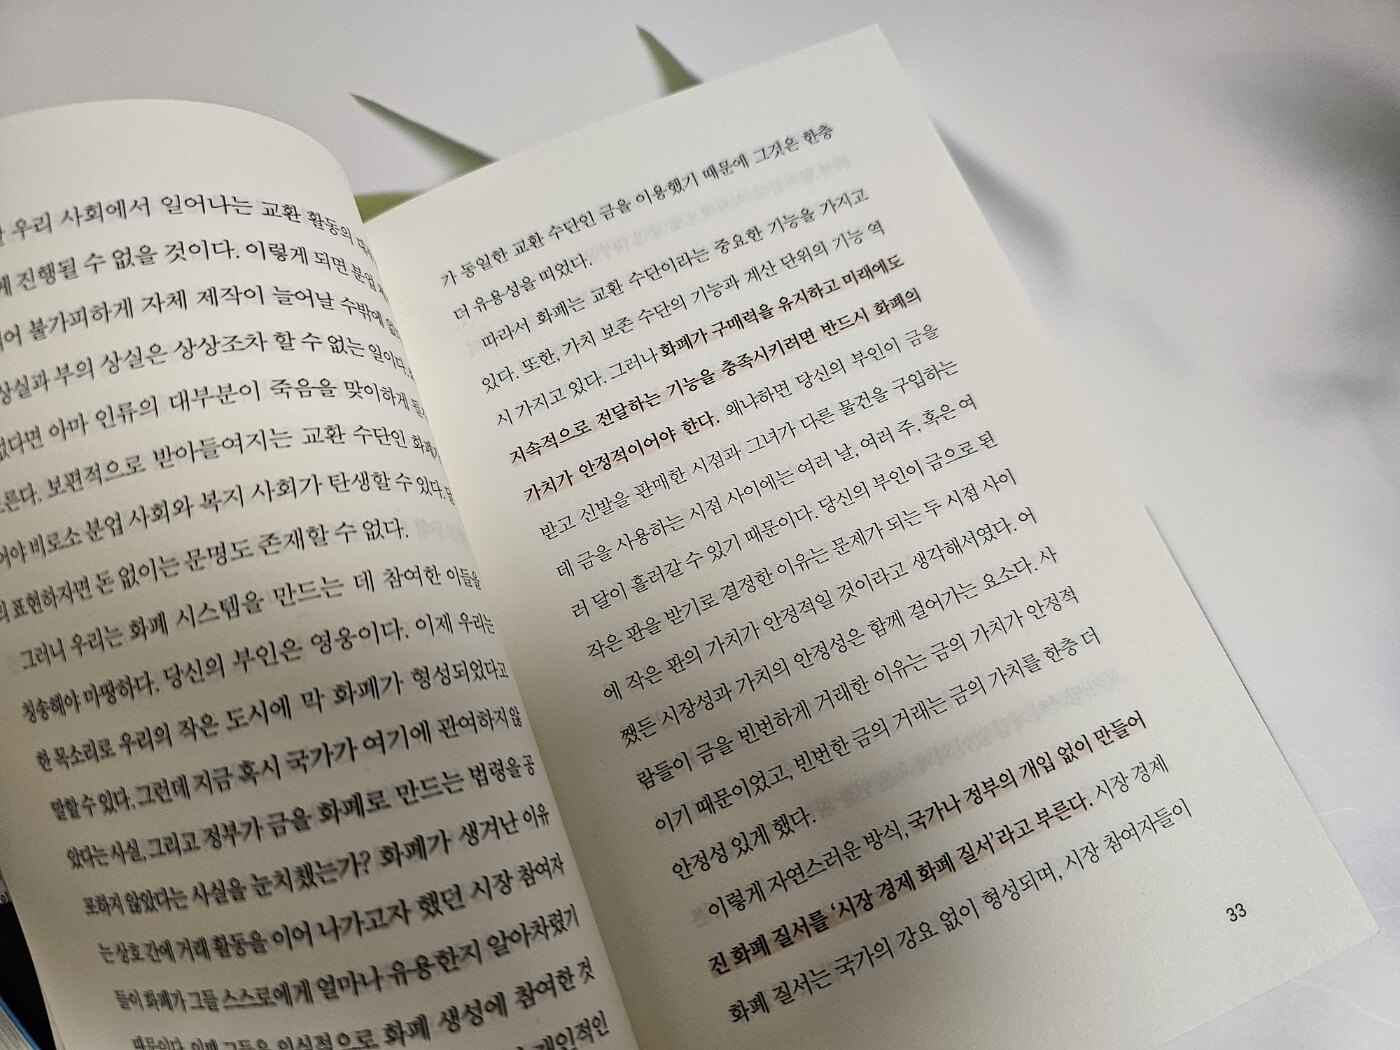 우리 사회에서 일어나는 교환 활동의
게 진행될 수 없을 것이다. 이렇게 되면 분업
불가피하게 자체 제작이 늘어날 수밖에
상실과 부의 상실은 상상조차 할 수 없는 일이다.
없다면 아마 인류의 대부분이 죽음을 맞이하게
보편적으로 받아들여지는 교환 수단인 화폐
비로소 분업 사회와 복지 사회가 탄생할 수 있다.
표현하자면 돈 없이는 문명도 존재할 수 없다.
그러니 우리는 화폐 시스템을 만드는 데 참여한 이들을
칭송해야 마땅하다. 당신의 부인은 영웅이다. 이제 우리는
한목소리로 우리의 작은 도시에 막 화폐가 형성되었다고
말할 수 있다. 그런데 지금 혹시 국가가 여기에 관여하지 않
았다는 사실, 그리고 정부가 금을 화폐로 만드는 법령을 공
포하지 않았다는 사실을 눈치챘는가? 화폐가 생겨난 이유
는 상호 간에 거래 활동을 이어 나가고자 했던 시장 참여자
들이 화폐가 그들 스스로에게 얼마나 유용한지 알아차렸기
때문이다. 의식적으로 화폐 생성에 참여한 것
개인적인
가 동일한 교환 수단인 금을 이용했기 때문에 그것은 한층
더 유용성을 띠었다.
따라서 화폐는 교환 수단이라는 중요한 기능을 가지고
있다. 또한, 가치 보존 수단의 기능과 계산 단위의 기능 역
시 가지고 있다. 그러나 화폐가 구매력을 유지하고 미래에도
지속적으로 전달하는 기능을 충족시키려면 반드시 화폐의
가치가 안정적이어야 한다. 왜냐하면 당신의 부인이 금을
받고 신발을 판매한 시점과 그녀가 다른 물건을 구입하는
데 금을 사용하는 시점 사이에는 여러 날, 여러 주, 혹은 여
러 달이 흘러갈 수 있기 때문이다. 당신의 부인이 금으로 된
작은 판을 받기로 결정한 이유는 문제가 되는 두 시점 사이
에 작은 판의 가치가 안정적일 것이라고 생각해서였다. 어
쨌든 시장성과 가치의 안정성은 함께 걸어가는 요소다. 사
람들이 금을 빈번하게 거래한 이유는 금의 가치가 안정적
이기 때문이었고, 빈번한 금의 거래는 금의 가치를 한층 더
안정성 있게 했다.
이렇게 자연스러운 방식, 국가나 정부의 개입 없이 만들어
진 화폐 질서를 ‘시장 경제 화폐 질서’라고 부른다. 시장 경제
화폐 질서는 국가의 강요 없이 형성되며, 시장 참여자들이
33